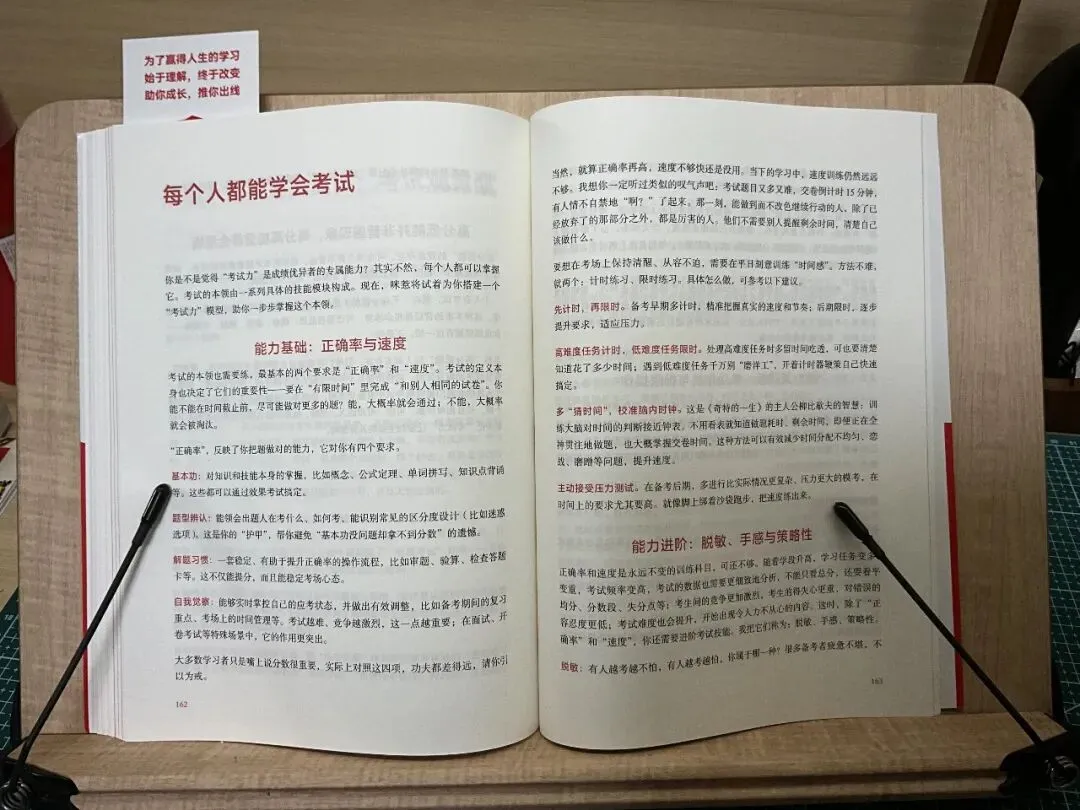 为了赢得人生的学习
始于理解，终于改变
助你成长，推你出线
每个人都能学会考试
你是不是觉得“考试力”是成绩优异者的专属能力？其实不然，每个人都可以掌握
它。考试的本领由一系列具体的技能模块构成。现在，咪惹将试着为你搭建一个
“考试力”模型，助你一步步掌握这个本领。
能力基础：正确率与速度
考试的本领也需要练，最基本的两个要求是“正确率”和“速度”。考试的定义本
身也决定了它们的重要性——要在“有限时间”里完成“和别人相同的试卷”。你
能不能在时间截止前，尽可能做对更多的题？能，大概率就会通过；不能，大概率
就会被淘汰。
“正确率”，反映了你把题做对的能力，它对你有四个要求。
基本功：对知识和技能本身的掌握，比如概念、公式定理、单词拼写、知识点背诵
等。这些都可以通过效果考试搞定。
题型辨认：能领会出题人在考什么、如何考、能识别常见的区分度设计（比如迷惑
选项）。这是你的“护甲”，帮你避免“基本功没问题却拿不到分数”的遗憾。
解题习惯：一套稳定、有助于提升正确率的操作流程，比如审题、验算、检查答题
卡等。这不仅能提分，而且能稳定考场心态。
自我觉察：能够实时掌控自己的应考状态，并做出有效调整，比如备考期间的复习
重点、考场上的时间管理等。考试越难、竞争越激烈，这一点越重要；在面试、开
卷考试等特殊场景中，它的作用更突出。
大多数学习者只是嘴上说分数很重要，实际上对照这四项，功夫都差得远，请你引
以为戒。
162
当然，就算正确率再高，速度不够快还是没用。当下的学习中，速度训练仍然远远
不够。我想你一定听过类似的叹气声吧：考试题目又多又难，交卷倒计时 15 分钟，
有人情不自禁地“啊？”了起来。那一刻，能做到面不改色继续行动的人，除了已
经放弃了的那部分之外，都是厉害的人。他们不需要别人提醒剩余时间，清楚自己
该做什么。
要想在考场上保持清醒、从容不迫，需要在平日刻意训练“时间感”。方法不难，
就两个：计时练习、限时练习。具体怎么做，可参考以下建议。
先计时，再限时。备考早期多计时，精准把握真实的速度和节奏；后期限时，逐步
提升要求，适应压力。
高难度任务计时，低难度任务限时。处理高难度任务时多留时间吃透，可也要清楚
知道花了多少时间；遇到低难度任务千万别“磨洋工”，开着计时器鞭策自己快速
搞定。
多“猜时间”，校准脑内时钟。这是《奇特的一生》的主人公柳比歇夫的智慧：训
练大脑对时间的判断接近钟表，不用看表就知道做题耗时、剩余时间，即便正在全
神贯注地做题，也大概掌握交卷时间，这种方法可以有效减少时间分配不均匀、恋
战、磨蹭等问题，提升速度。
主动接受压力测试。在备考后期，多进行比实际情况更复杂、压力更大的模考，在
时间上的要求尤其要高。就像脚上绑着沙袋跑步，把速度练出来。
能力进阶：脱敏、手感与策略性
正确率和速度是永远不变的训练科目，可还不够。随着学段升高，学习任务变多
变重，考试频率变高，考试的数据也需要更细致地分析，不能只看总分，还要看平
均分、分数段、失分点等；考生间的竞争更加激烈，考生的得失心更重，对错误的
容忍度更低；考试难度也会提升，开始出现令人力不从心的内容。这时，除了“正
确率”和“速度”，你还需要进阶考试技能。我把它们称为：脱敏、手感、策略性。
脱敏：有人越考越不怕，有人越考越怕，你属于哪一种？很多备考者疲惫不堪，不
163